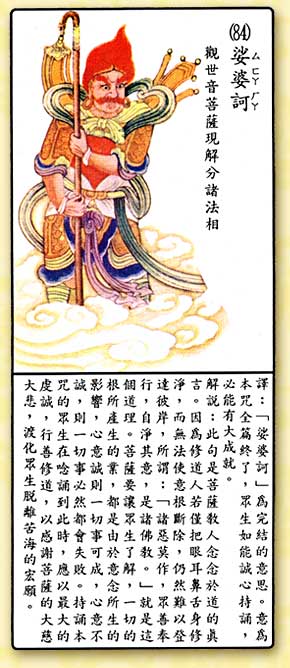 (84)娑婆訶
觀世音菩薩現解分諸法相
譯：「娑婆訶」為完結的意思。意為
本咒全篇終了，眾生如能誠心持誦，
必能有大成就。
解說：此句是菩薩教人念念於道的真
言。因為修道人若僅把眼耳鼻舌身修
淨，而無法使意根斷除，仍然難以登
達彼岸，所謂：「諸惡莫作，眾善奉
行，自淨其意，是諸佛教。」就是這
個道理。菩薩要讓眾生了解，一切的
根所產生的業，都是由於意念所生的
影響，心意誠則一切事可成，心意不
誠，則一切事必然都會失敗。持誦本
咒的眾生在唸誦到此時，應以最大的
虔誠，行善修道，以感謝菩薩的大慈
大悲，渡化眾生脫離苦海的宏願。